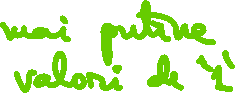 mai puține
valori de '1'